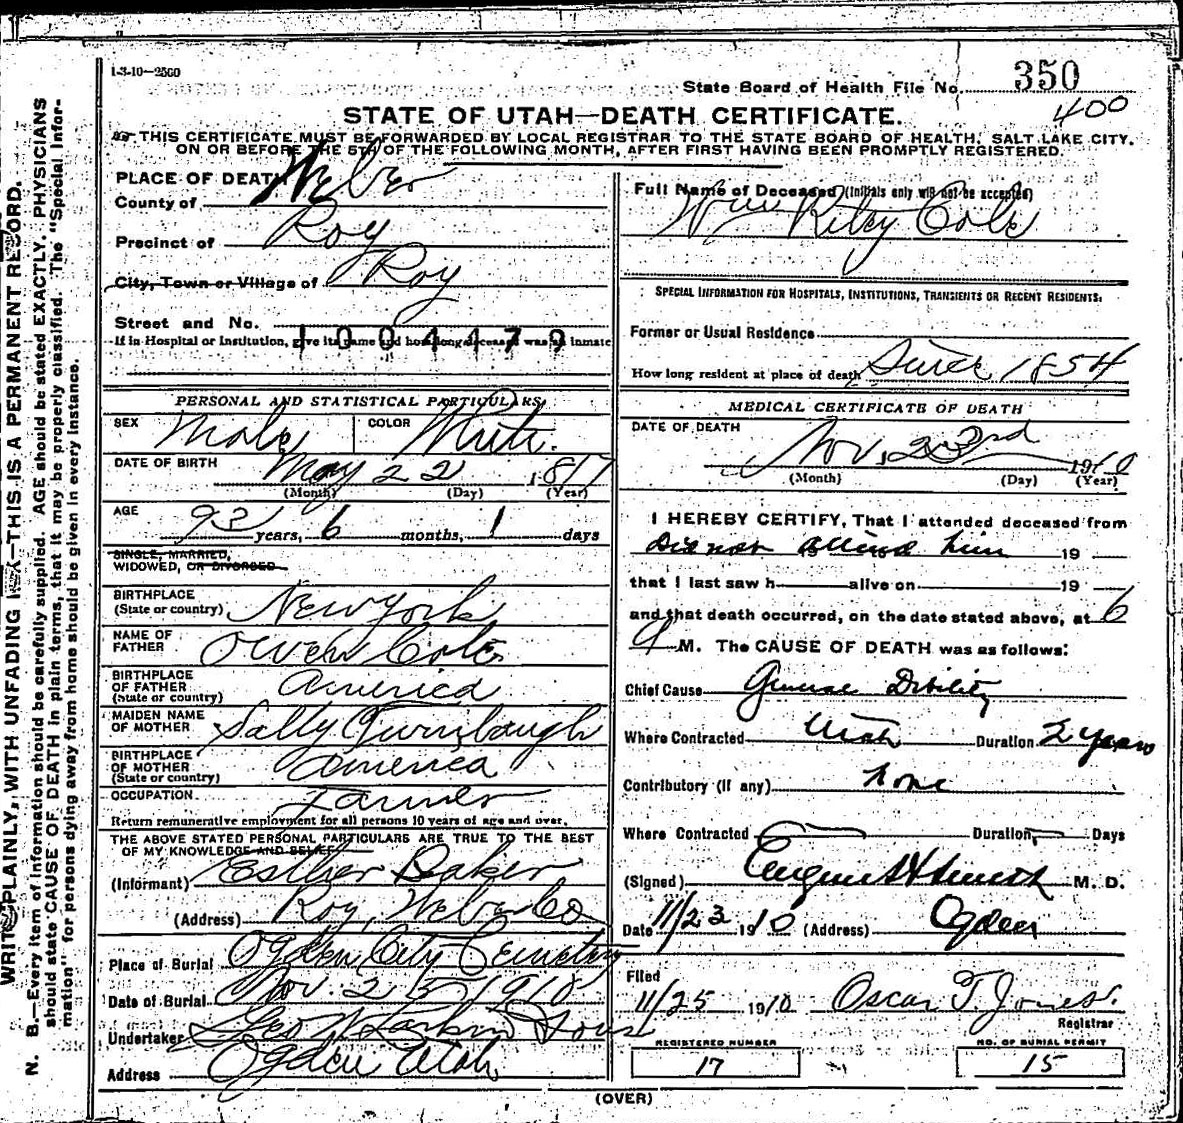 1-3-10-2500
State Board of Health File No. 350
400
STATE OF UTAH—DEATH CERTIFICATE.
THIS CERTIFICATE MUST BE FORWARDED BY LOCAL REGISTRAR TO THE STATE BOARD OF HEALTH, SALT LAKE CITY,
ON OR BEFORE THE 5TH OF THE FOLLOWING MONTH, AFTER FIRST HAVING BEEN PROMPTLY REGISTERED.
WRITE PLAINLY, WITH UNFADING INK—THIS IS A PERMANENT RECORD.
N. B.—Every item of information should be carefully supplied. AGE should be stated EXACTLY. PHYSICIANS
should state CAUSE OF DEATH in plain terms, that it may be properly classified. The "Special Infor-
mation" for persons dying away from home should be given in every instance.
PLACE OF DEATH
County of Weber
Precinct of Roy
City, Town or Village of Roy
Street and No.
If in Hospital or Institution, give its name and how long deceased was an inmate
1004479
PERSONAL AND STATISTICAL PARTICULARS
SEX Male COLOR White.
DATE OF BIRTH May 22 1817
(Month) (Day) (Year)
AGE 93 years, 6 months, 1 days
SINGLE, MARRIED,
WIDOWED, OR DIVORCED
BIRTHPLACE
(State or country) New York
NAME OF
FATHER Owen Cole
BIRTHPLACE
OF FATHER
(State or country) America
MAIDEN NAME
OF MOTHER Sally
BIRTHPLACE
OF MOTHER
(State or country) America
OCCUPATION Farmer
Return remunerative employment for all persons 10 years of age and over.
THE ABOVE STATED PERSONAL PARTICULARS ARE TRUE TO THE BEST
OF MY KNOWLEDGE AND BELIEF
(Informant) Esther Baker
(Address) Roy, Weber Co
Place of Burial Ogden City Cemetery
Date of Burial Nov. 25 1910
Undertaker Geo W Larkin Sons
Address Ogden Utah
Full Name of Deceased (Initials only will not be accepted)
Wm Riley Cole
SPECIAL INFORMATION FOR HOSPITALS, INSTITUTIONS, TRANSIENTS OR RECENT RESIDENTS.
Former or Usual Residence
How long resident at place of death Since 1854
MEDICAL CERTIFICATE OF DEATH
DATE OF DEATH
Nov. 23rd 1910
(Month) (Day) (Year)
I HEREBY CERTIFY, That I attended deceased from
Did not attend him 19
that I last saw h alive on 19
and that death occurred, on the date stated above, at 6
A M. The CAUSE OF DEATH was as follows:
Chief Cause General Debility
Where Contracted Utah Duration 2 years
Contributory (if any) none
Where Contracted Duration Days
(Signed) Eugene H Smith M. D.
Date 11/23 1910 (Address) Ogden
Filed
11/25 1910 Oscar T. Jones.
Registrar
REGISTERED NUMBER
17
NO. OF BURIAL PERMIT
15
(OVER)